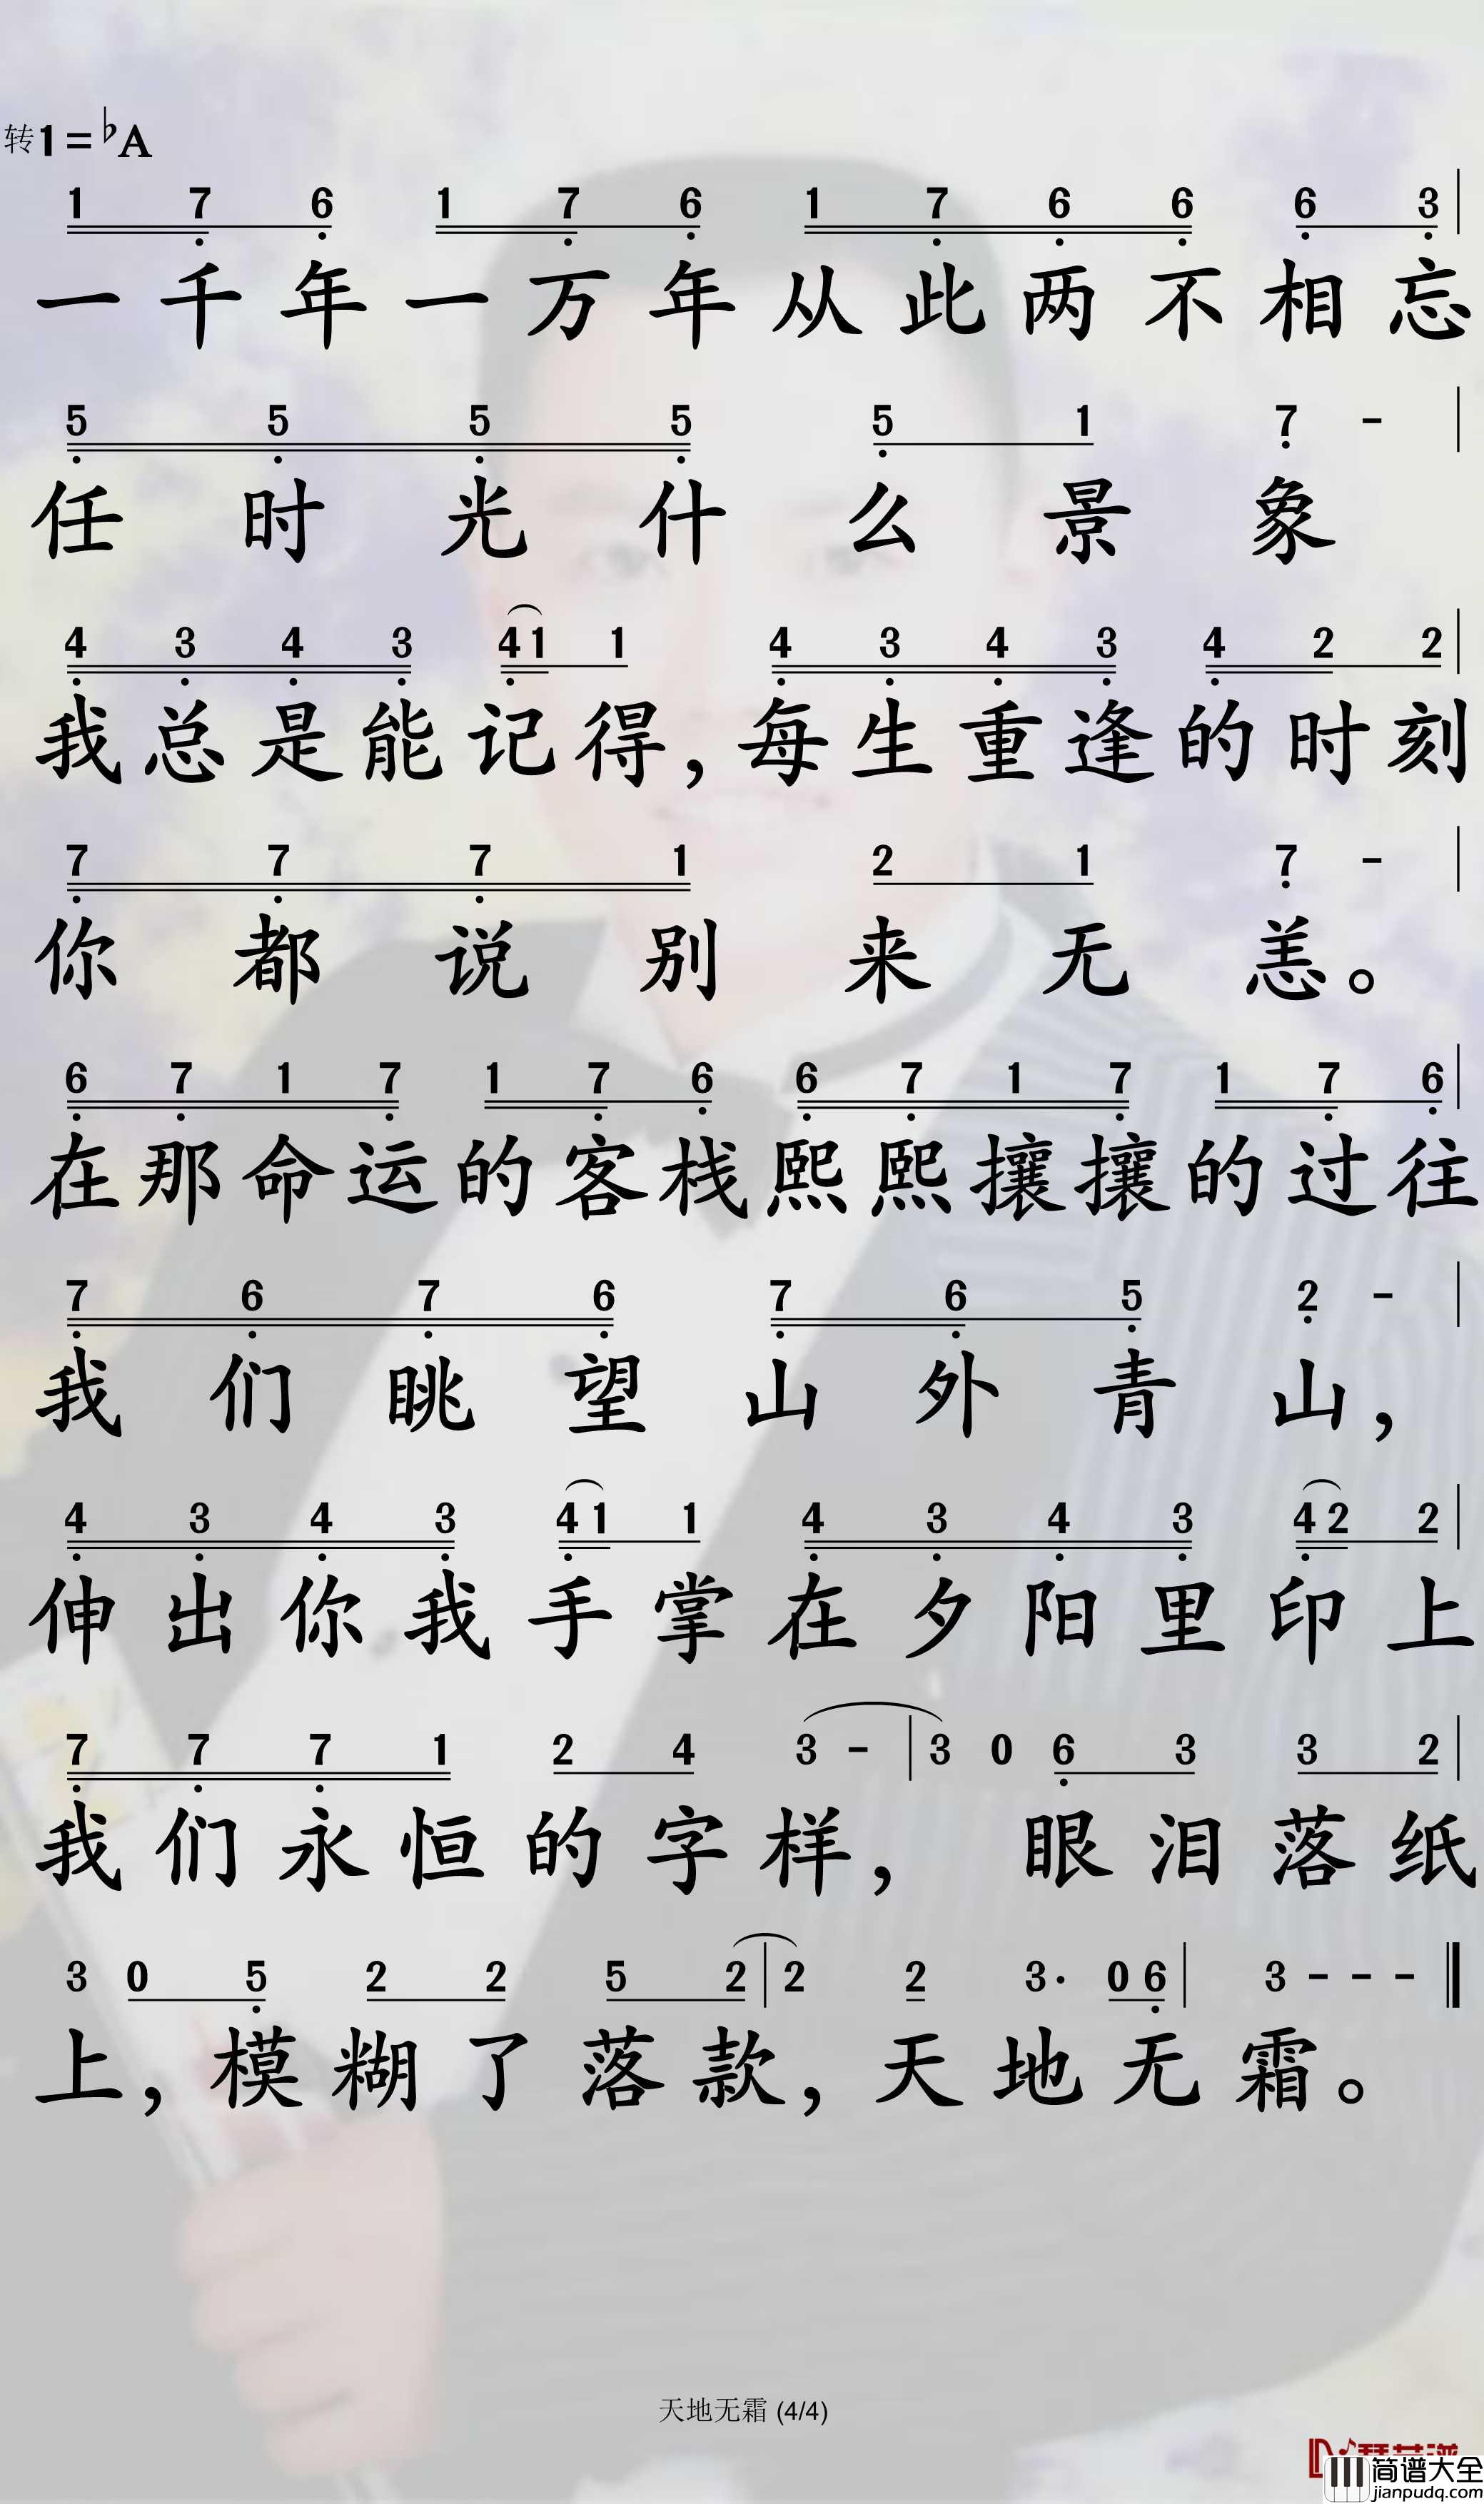 转1=♭A
1 7 6 1 7 6 1 7 6 6 6 3
一千年一万年从此两不相忘
5 5 5 5 5 1 7 -
任时光什么景象
4 3 4 3 4 1 1 4 3 4 3 4 2 2
我总是能记得,每生重逢的时刻
7 7 7 1 2 1 7 -
你都说别来无恙。
6 7 1 7 1 7 6 6 7 1 7 1 7 6
在那命运的客栈熙熙攘攘的过往
7 6 7 6 7 6 5 2 -
我们眺望山外青山,
4 3 4 3 4 1 1 4 3 4 3 4 2 2
伸出你我手掌在夕阳里印上
7 7 7 1 2 4 3 - 3 0 6 3 3 2
我们永恒的字样,眼泪落纸
3 0 5 2 2 5 2 2 2 3· 0 6 3 - - -
上,模糊了落款,天地无霜。
天地无霜 (4/4)
简谱大全
jianpudq.com